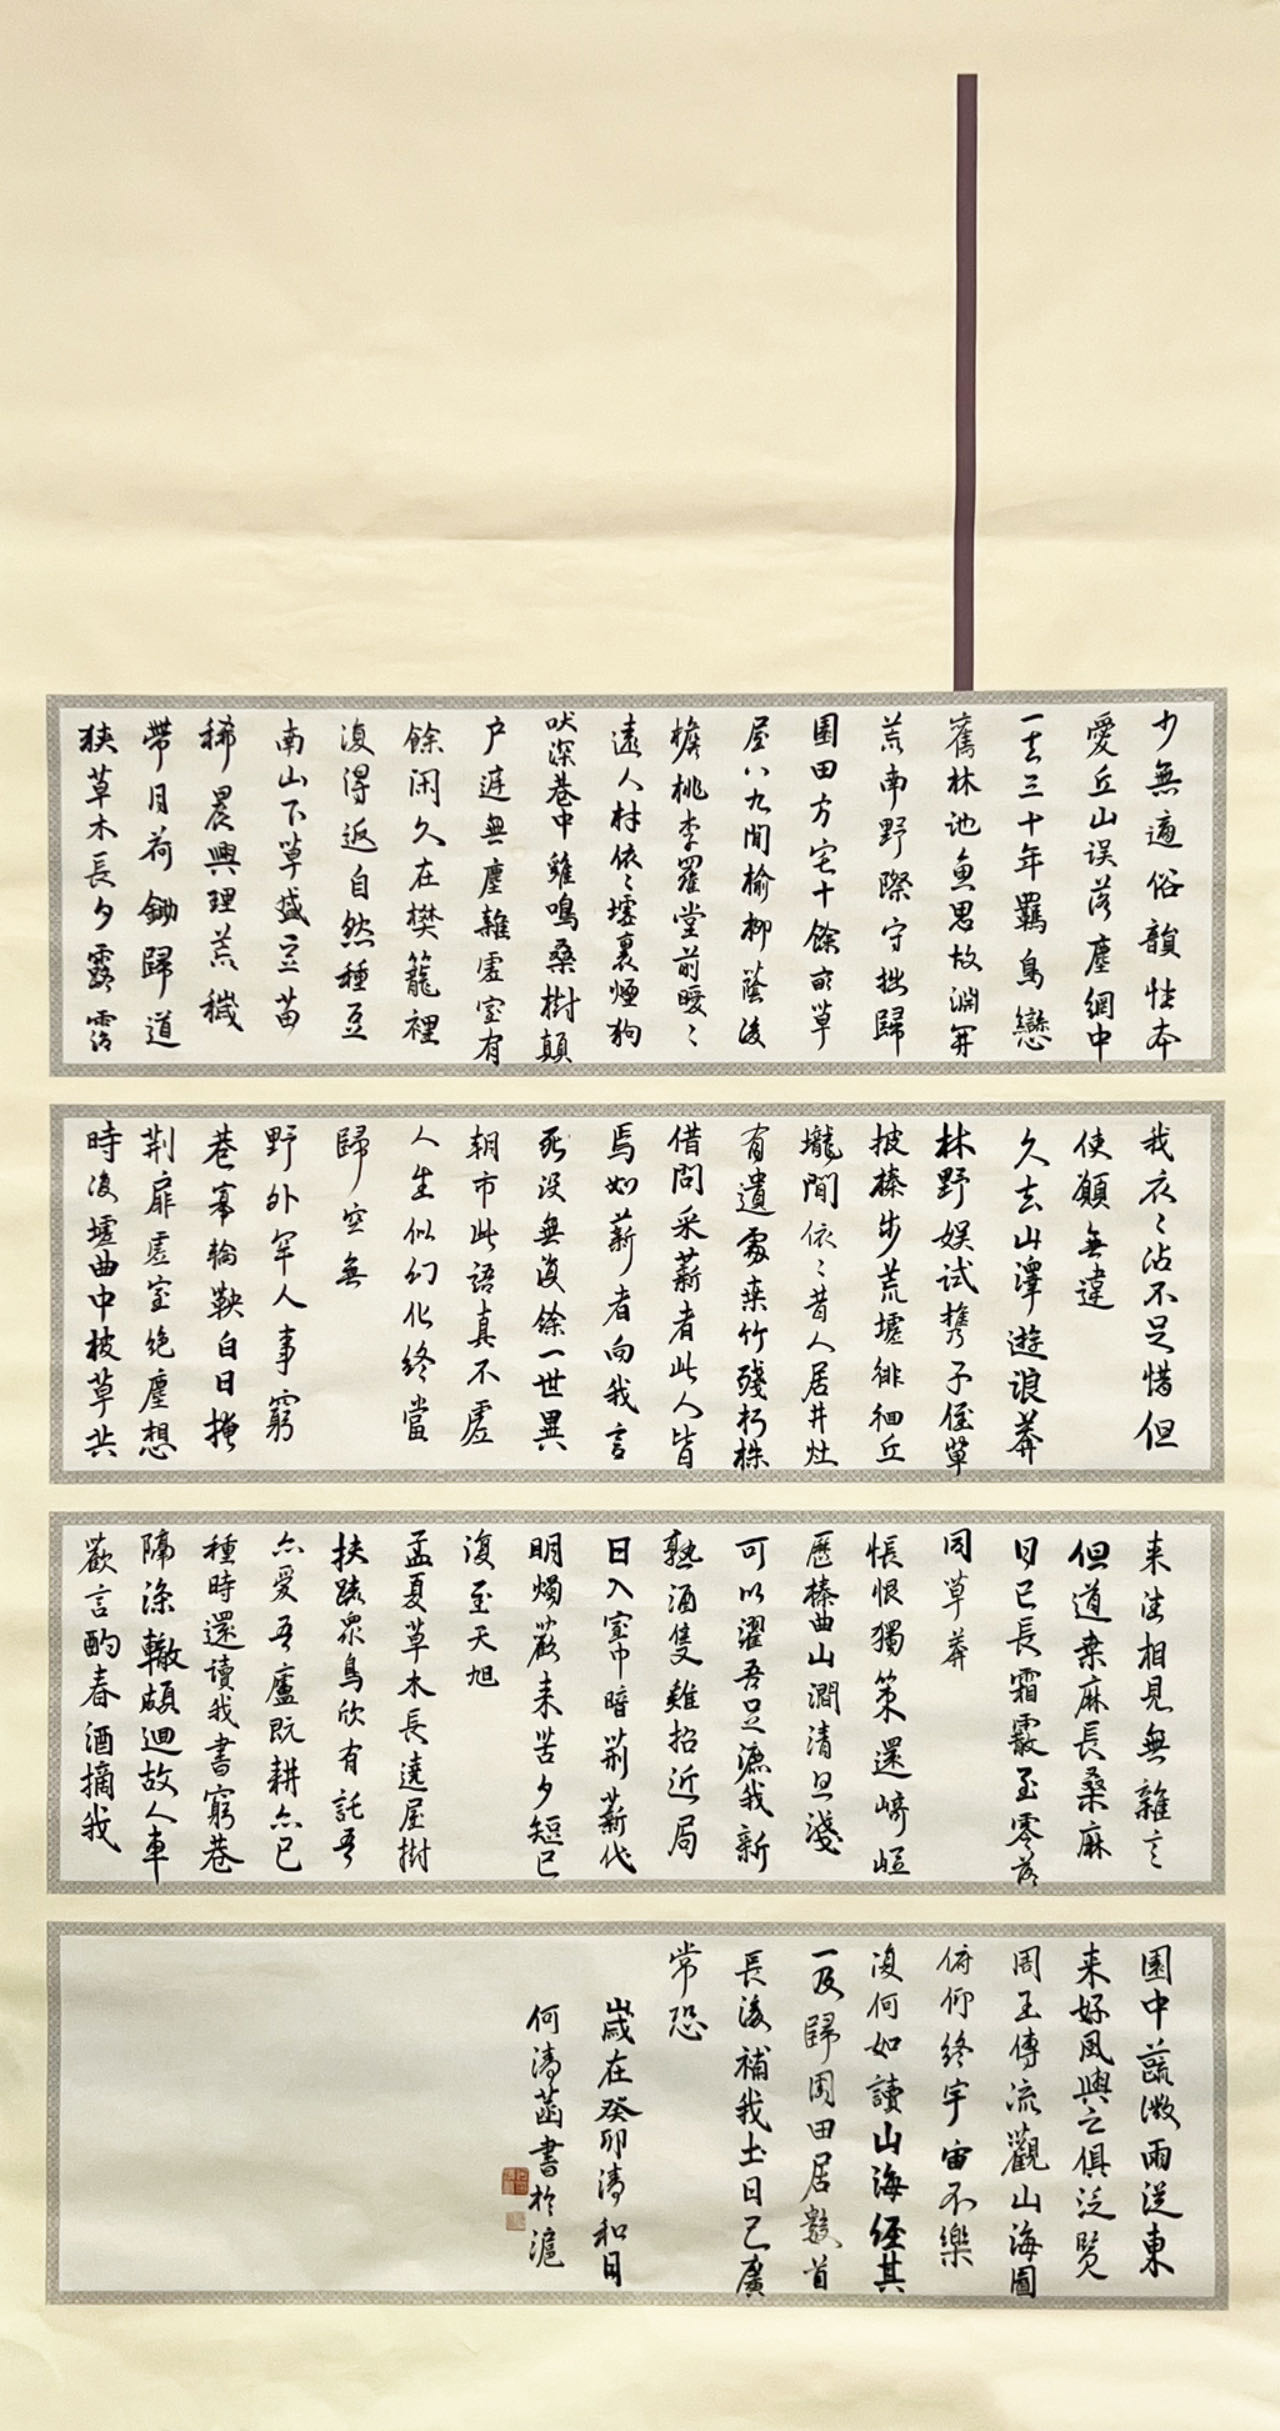 少無適俗韻性本
愛丘山误落塵網中
一去三十年羈鳥戀
舊林池魚思故淵開
荒南野際守拙歸
園田方宅十餘畝草
屋八九間榆柳蔭後
檐桃李羅堂前曖〻
遠人村依〻墟裏煙狗
吠深巷中雞鳴桑樹顛
户庭無塵雜虛室有
餘闲久在樊籠裡
復得返自然種豆
南山下草盛豆苗
稀晨興理荒穢
帶月荷鋤歸道
狹草木長夕露霑
我衣〻沾不足惜但
使願無違
久去山澤遊浪莽
林野娱试攜子侄草
披榛步荒墟徘徊丘
壠間依〻昔人居井灶
有遺處桑竹殘朽株
借問采薪者此人皆
焉如薪者向我言
死没無復餘一世異
朝市此語真不虛
人生似幻化终當
歸空無
野外罕人事窮
巷寡輪鞅白日掩
荆扉虛室绝塵想
時復墟曲中披草共
来往相見無雜言
但道桑麻長桑麻
日已長霜霰至零落
同草莽
悵恨獨策還崎嶇
歷榛曲山澗清且淺
可以濯吾足漉我新
熟酒隻雞招近局
日入室中暗荆薪代
明燭歡来苦夕短已
復至天旭
孟夏草木長遶屋樹
扶疏眾鳥欣有託吾
亦愛吾廬既耕亦已
種時還讀我書窮巷
隔深轍頗迴故人車
歡言酌春酒摘我
園中蔬微雨從東
来好風與之俱泛覽
周王傳流觀山海圖
俯仰終宇宙不樂
復何如讀山海經其
一及歸園田居數首
長後補我土日已廣
常恐
歲在癸卯清和月
何清菡書於滬